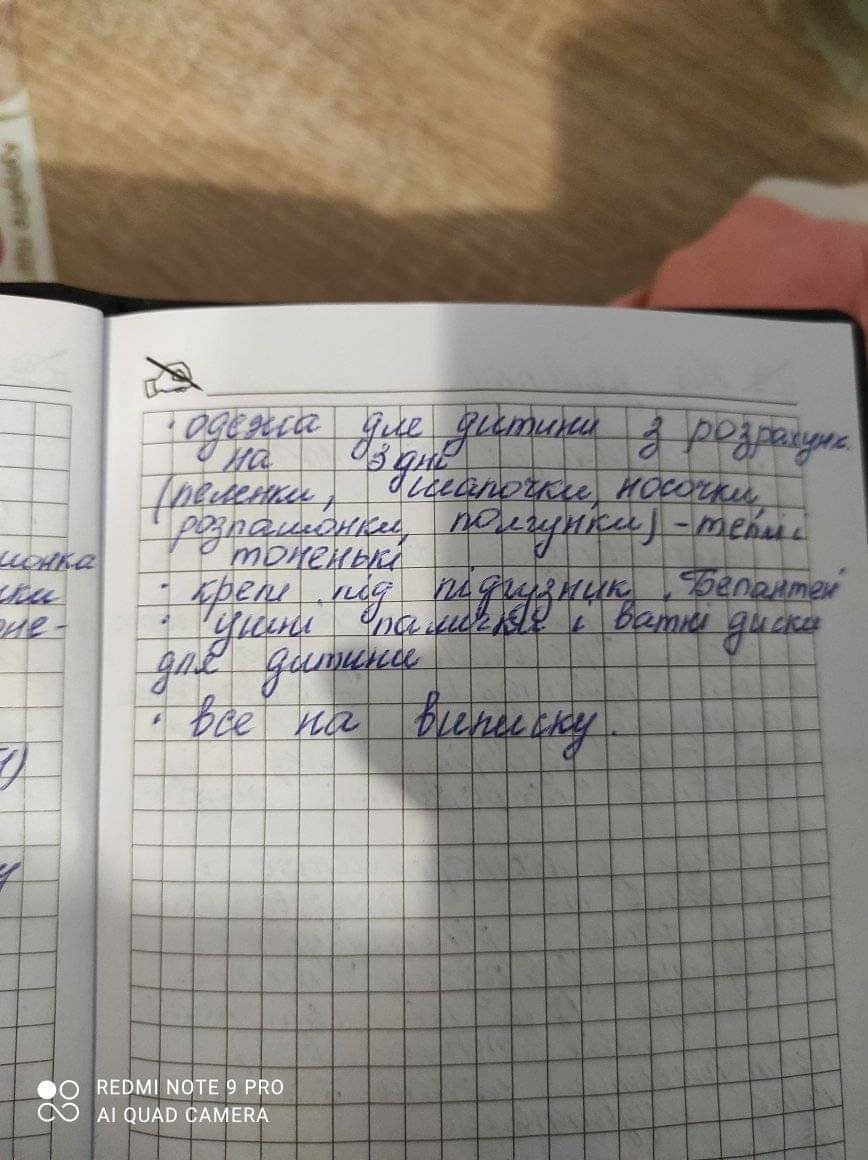 · одежа для дитини з розрахунк.
на 3 дні
(пеленки, шапочки, носочки,
розпашонки, ползунки) - теплі
тоненькі
· крем під підгузник „Бепантен"
· ушні палички і ватні диски
для дитини
· все на виписку.
шонка
ки
оне-
у
REDMI NOTE 9 PRO
AI QUAD CAMERA